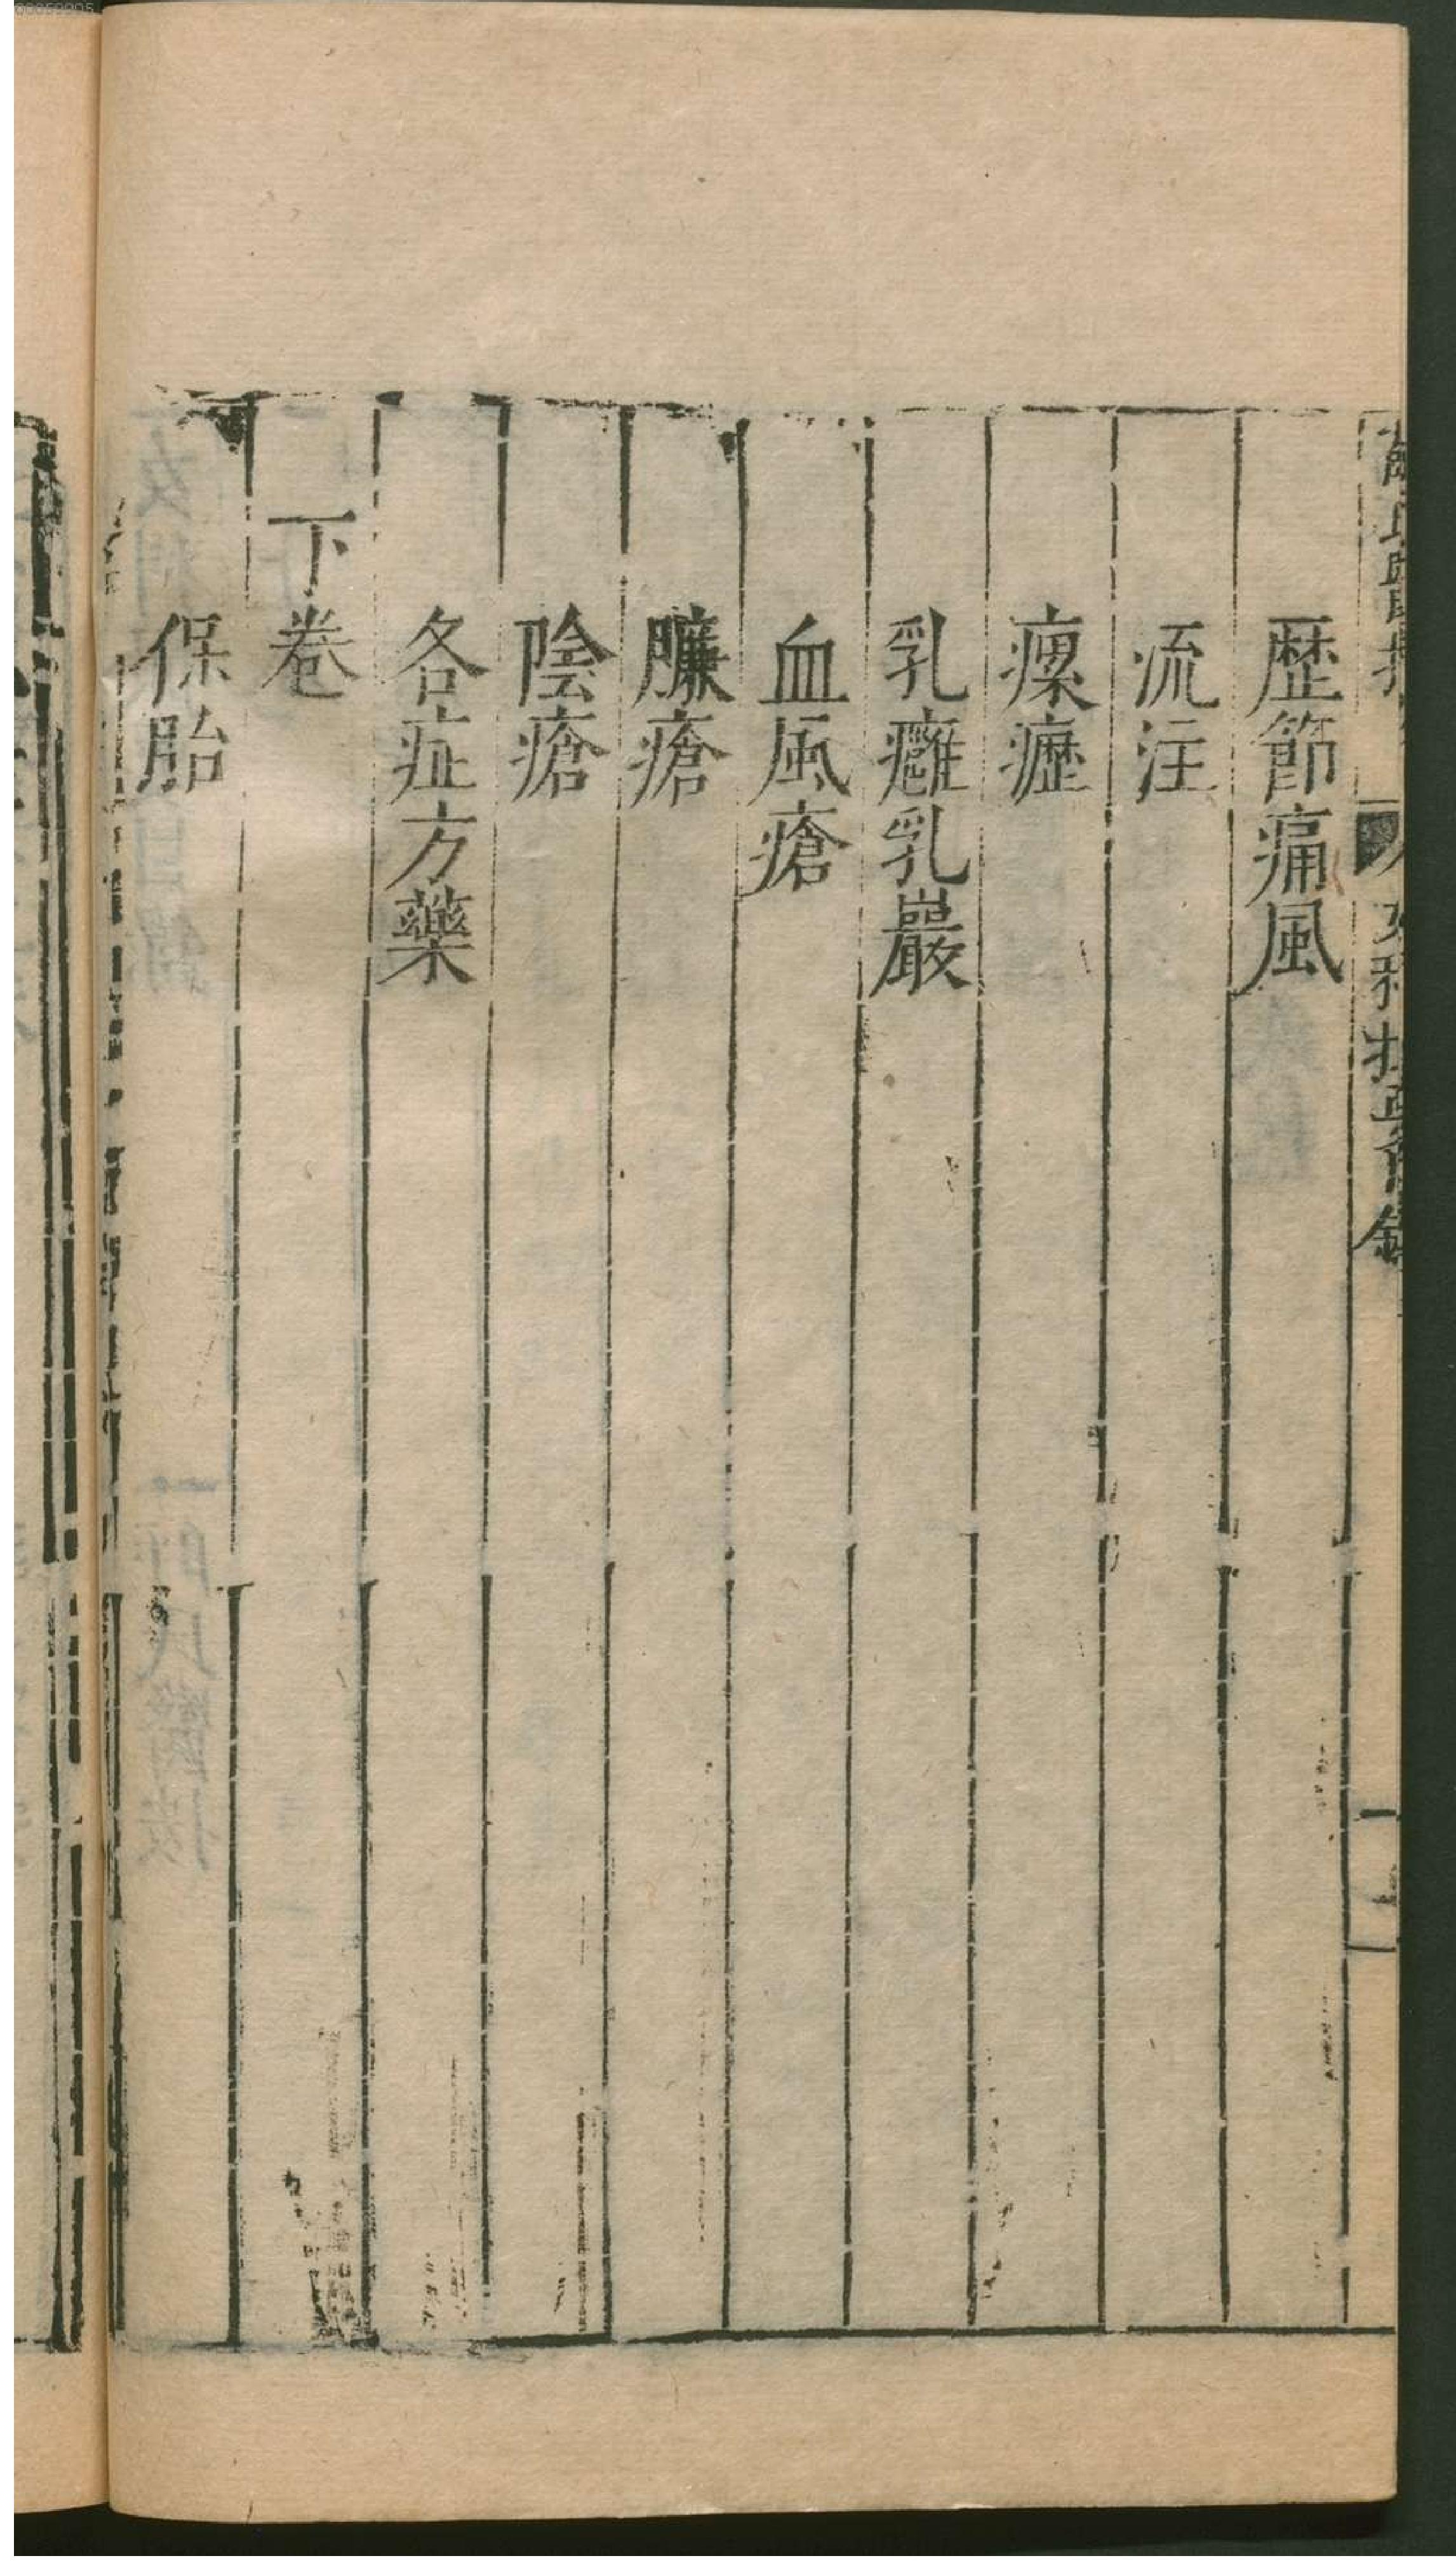 歷節痛風
流注
瘰癧
乳癰乳巖
血風瘡
臁瘡
陰瘡
各症方藥
下卷
保胎